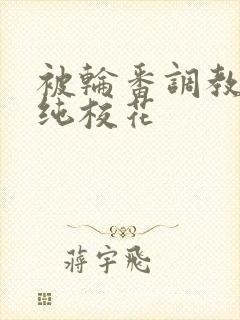 被輪番調教
纯校花
蒋宇飛